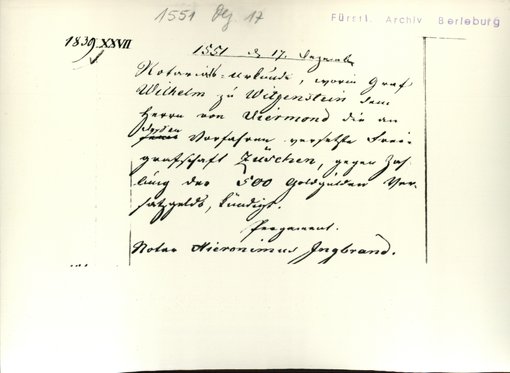 1551 Dez. 17
Fürstl. Archiv Berleburg
1839 XXVII
1551 d 17. Dezember
Notariats-Urkunde, worin Graf
Wilhelm zu Witgenstein dem
Herrn von Viermond die an
dessen
Vorfahren versetzte Frei-
grafschaft Züschen, gegen Zah-
lung der 500 Goldgulden Ver-
satzgelds, kündigt.
Pergament.
Notar Hieronimus Jngbrand.